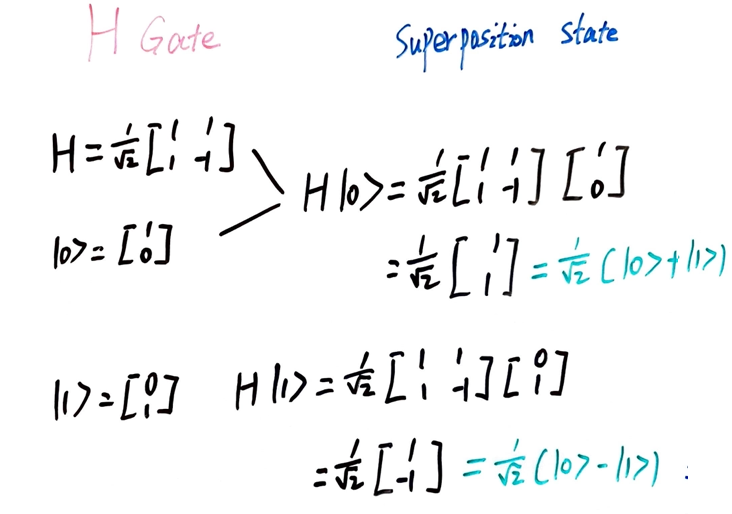 H Gate
Superposition state
H = 1/√2 [1 1; 1 -1]
|0> = [1; 0]
H|0> = 1/√2 [1 1; 1 -1] [1; 0]
= 1/√2 [1; 1] = 1/√2 (|0>+|1>)
|1> = [0; 1]
H|1> = 1/√2 [1 1; 1 -1] [0; 1]
= 1/√2 [1; -1] = 1/√2 (|0>-|1>) :